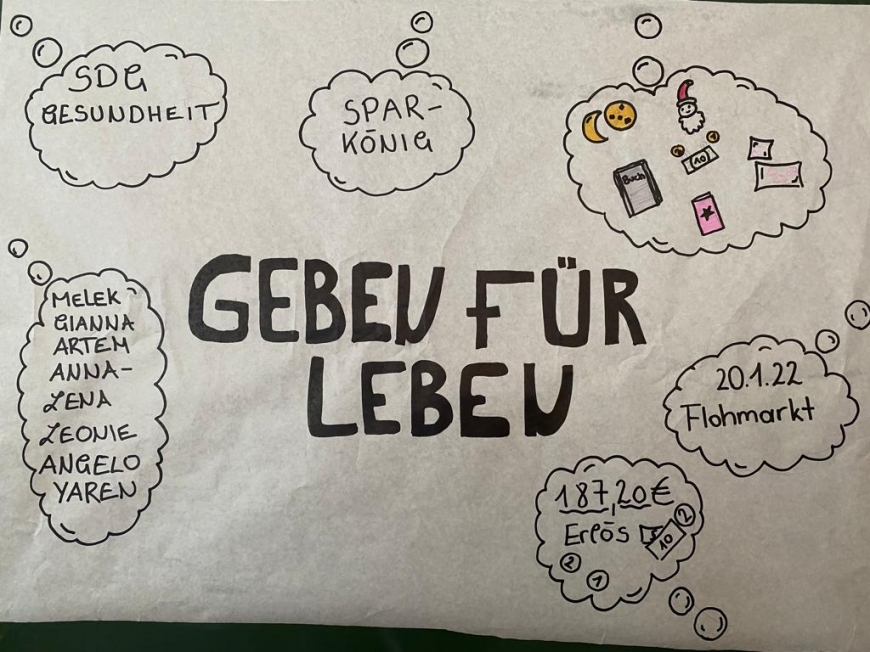 SDG
GESUNDHEIT
SPAR-
KÖNIG
10
Buch
MELEK
GIANNA
ARTEM
ANNA-
LENA
LEONIE
ANGELO
YAREN
GEBEN FÜR
LEBEN
20.1.22
Flohmarkt
187,20€
Erlös
2
10
2
1